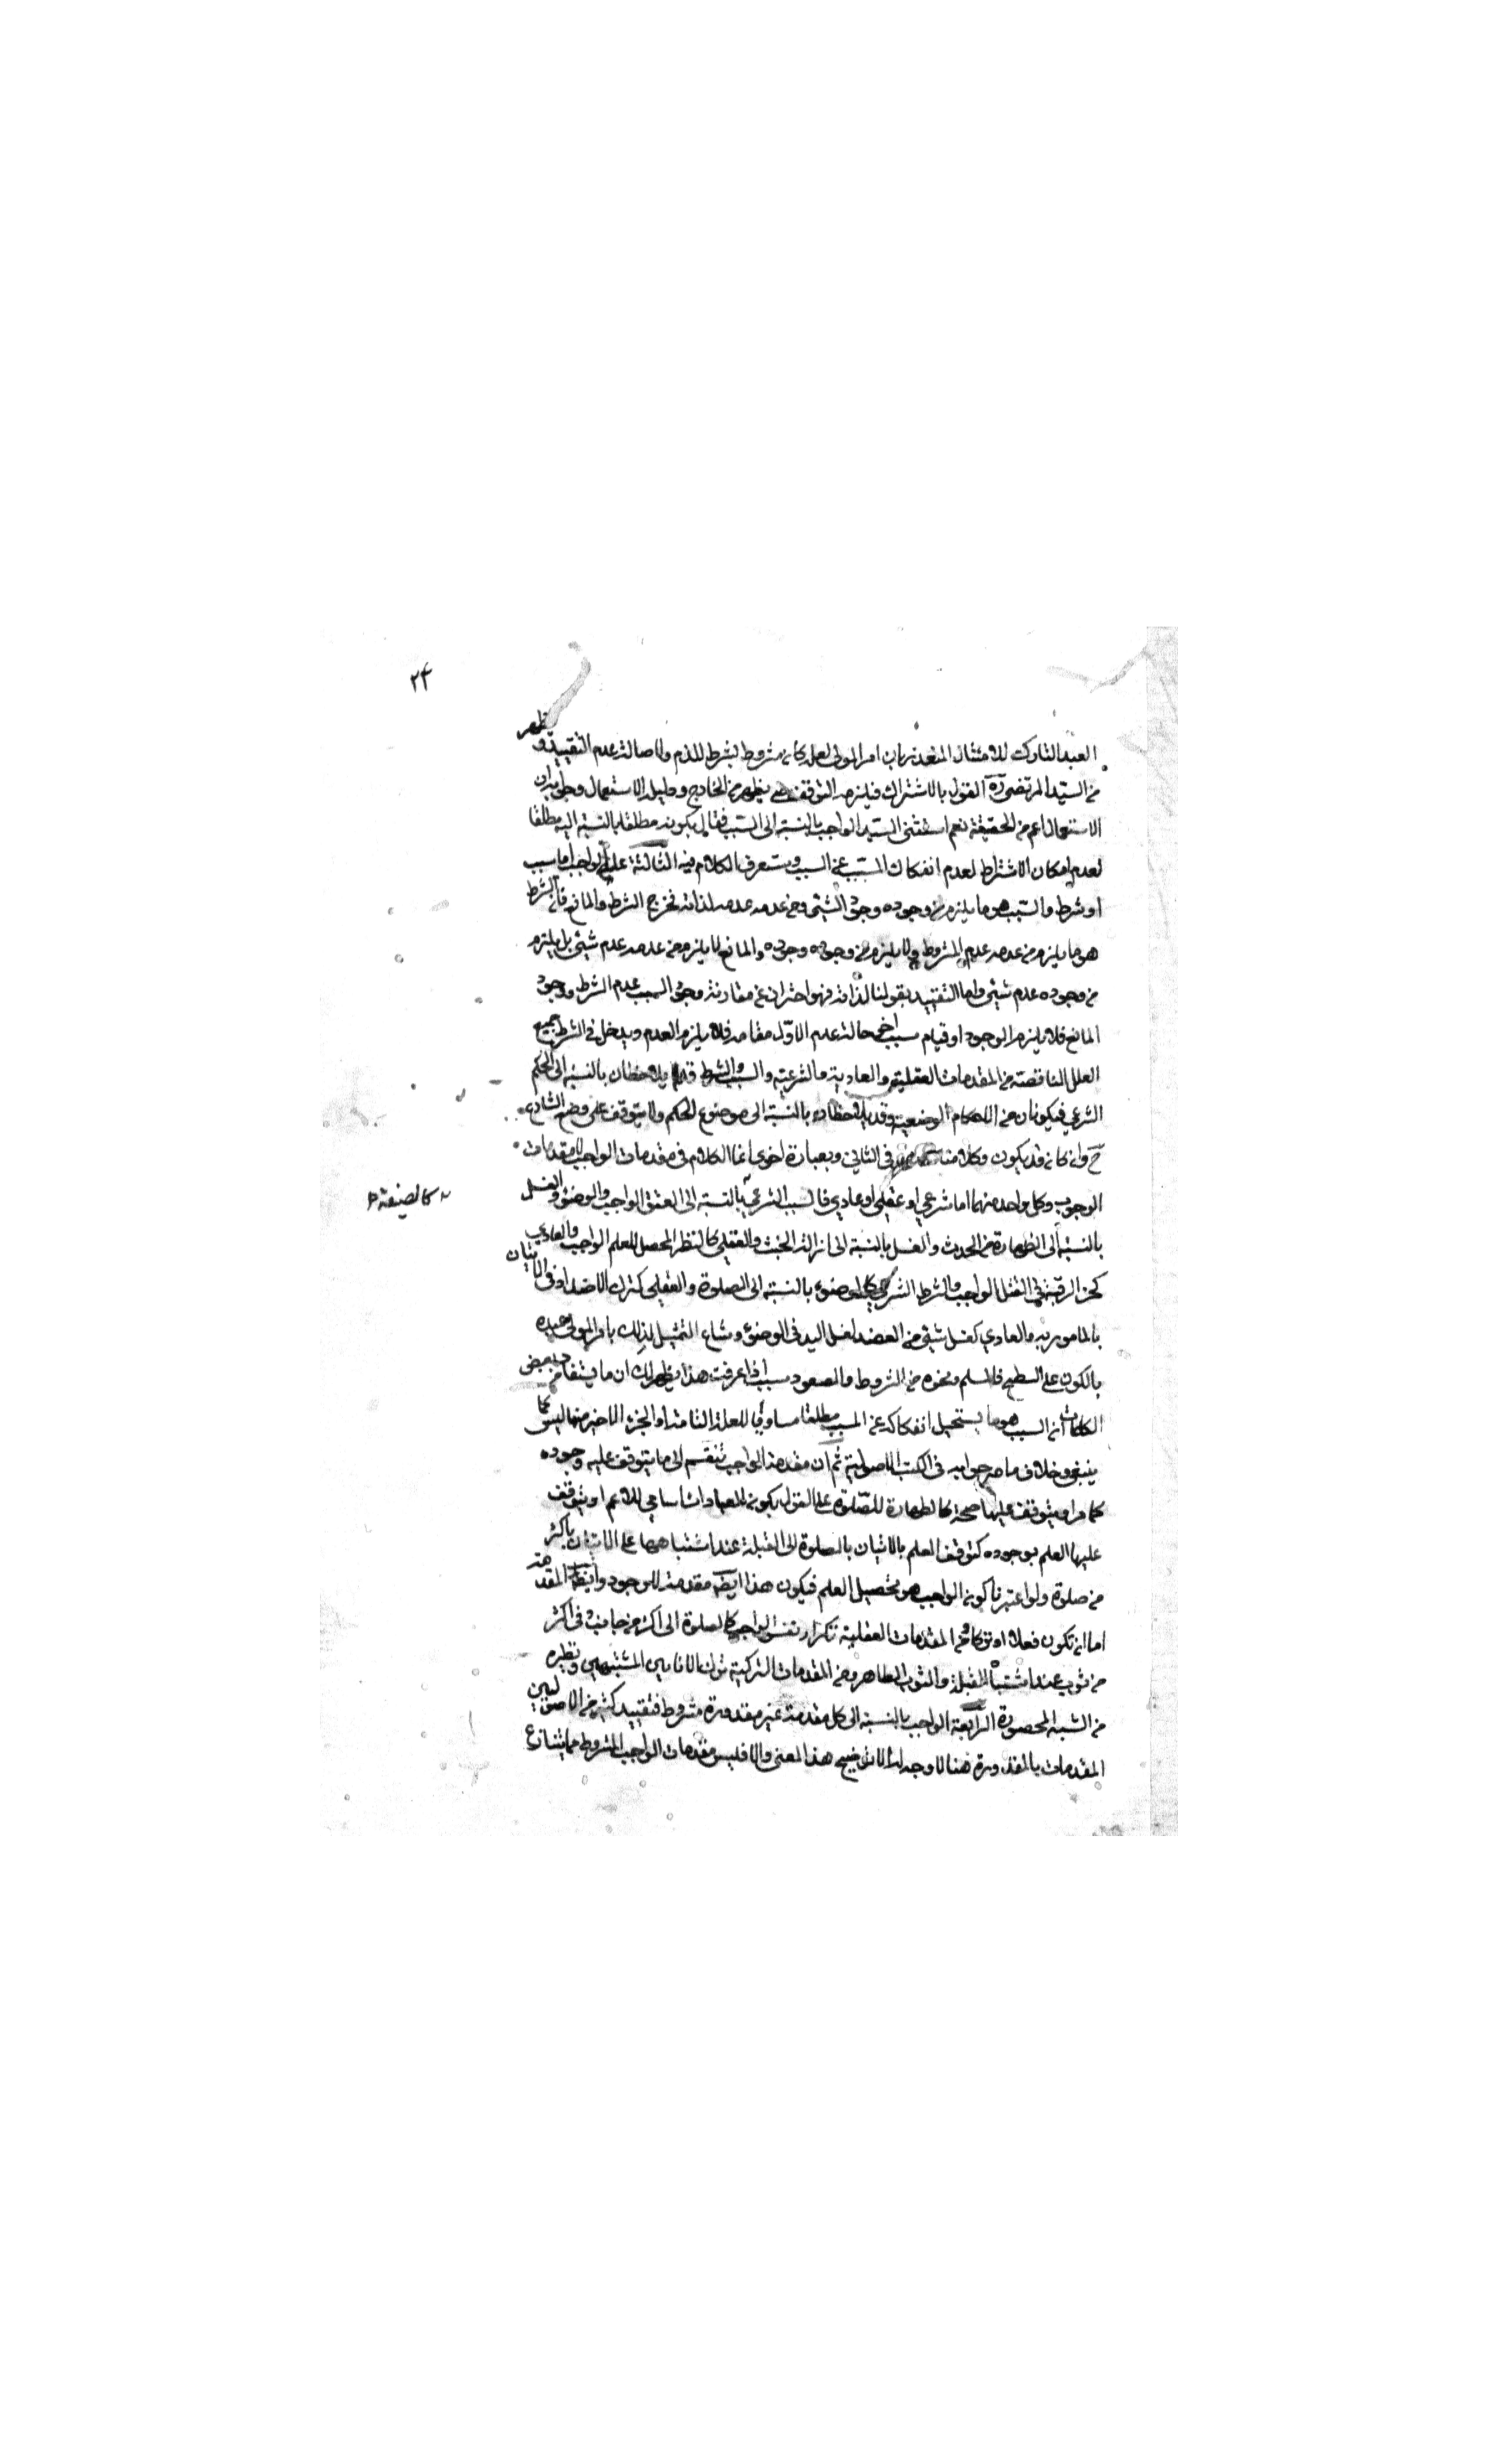 ٢٤
العبد التارك للامتثال المتعذر بان امر المولى لعله كان مشروطا بشرط للذم ولاصالة عدم التقييد و يظهر
من السيد المرتضى ره القول بالاشتراك فيلزمه التوقف حتى يظهر من الخارج ودليله الاستعمال وجوابه ان
الاستعمال اعم من الحقيقة نعم استثنى السيد الواجب بالنسبة الى السبب فقال بكونه مطلقا بالنسبة اليه مطلقا
لعدم امكان الاشتراط لعدم انفكاك المسبب عن السبب وستعرف الكلام فيه الثالثة الواجب اما سبب
او شرط والسبب هو ما يلزم من وجوده وجود الشيئ ومن عدمه عدمه لذاته فخرج الشرط والمانع فان الشرط
هو ما يلزم من عدمه عدم المشروط ولا يلزم من وجوده وجوده والمانع لا يلزم من عدمه عدم شيئ بل يلزم
من وجوده عدم شيئ واما التقييد بقولنا لذاته فهو احتراز عن مقارنة وجود السبب عدم الشرط ووجود
المانع فلا يلزم الوجود او قيام سبب اخر حالة عدم الاول مقامه فلا يلزم العدم ويدخل في الشرط جميع
العلل الناقصة من المقدمات العقلية والعادية والشرعية والسبب والشرط قد يلاحظان بالنسبة الى الحكم
الشرعي فيكونان من الاحكام الوضعية وقد يلاحظان بالنسبة الى موضوع الحكم ولا يتوقف على وضع الشارع
ح وان كان قد يكون وكلامنا في الثاني وبعبارة اخرى انما الكلام في مقدمات الواجب لا مقدمات
الوجوب وكل واحد منهما اما شرعي او عقلي او عادي فالسبب الشرعي بالنسبة الى العتق الواجب والوضوء والغسل
كالصيغة
بالنسبة الى الطهارة من الحدث والغسل بالنسبة الى ازالة الخبث والعقلي كالنظر المحصل للعلم الواجب والعادي
كحز الرقبة في القتل الواجب والشرط الشرعي كالوضوء بالنسبة الى الصلوة والعقلي كترك الاضداد في الاتيان
بالمامور به والعادي كغسل شيئ من العضد لغسل اليد في الوضوء وشاع التمثيل لذلك بامر المولى عبده
بالكون على السطح فالسلم ونحوه من الشروط والصعود سبب اذا عرفت هذا يظهر لك ان ما يستفاد من بعض
الكلمات ان السبب هو ما يستحيل انفكاكه عن المسبب مطلقا مساويا للعلة التامة او الجزء الاخير منها ليس كما
ينبغي وخلاف ما صرحوا به في الكتب الاصولية ثم ان مقدمة الواجب تنقسم الى ما يتوقف عليه وجوده
كما مر او يتوقف عليها صحته كالطهارة للصلوة على القول بكون العبادات اسامي للاعم او يتوقف
عليها العلم بوجوده كتوقف العلم بالاتيان بالصلوة الى القبلة عند اشتباهها على الاتيان باكثر
من صلوة ولو اعتبرنا كون الواجب هو تحصيل العلم فيكون هذا ايضا مقدمة للوجود وايضا المقدمة
اما ان تكون فعلا او تركا فمن المقدمات العقلية تكرار نفس الواجب كالصلوة الى اكثر من جانب وفي اكثر
من ثوب عند اشتباه القبلة والثوب الطاهر ومن المقدمات التركية ترك الاناءين المشتبهين ونظيره
من الشبه المحصورة الرابعة الواجب بالنسبة الى كل مقدمة غير مقدورة مشروط فتقييد كثير من الاصوليين
المقدمات بالمقدورة هنا لا وجه له الا توضيح هذا المعنى والا فليس مقدمات الواجب المشروط مما يتنازع